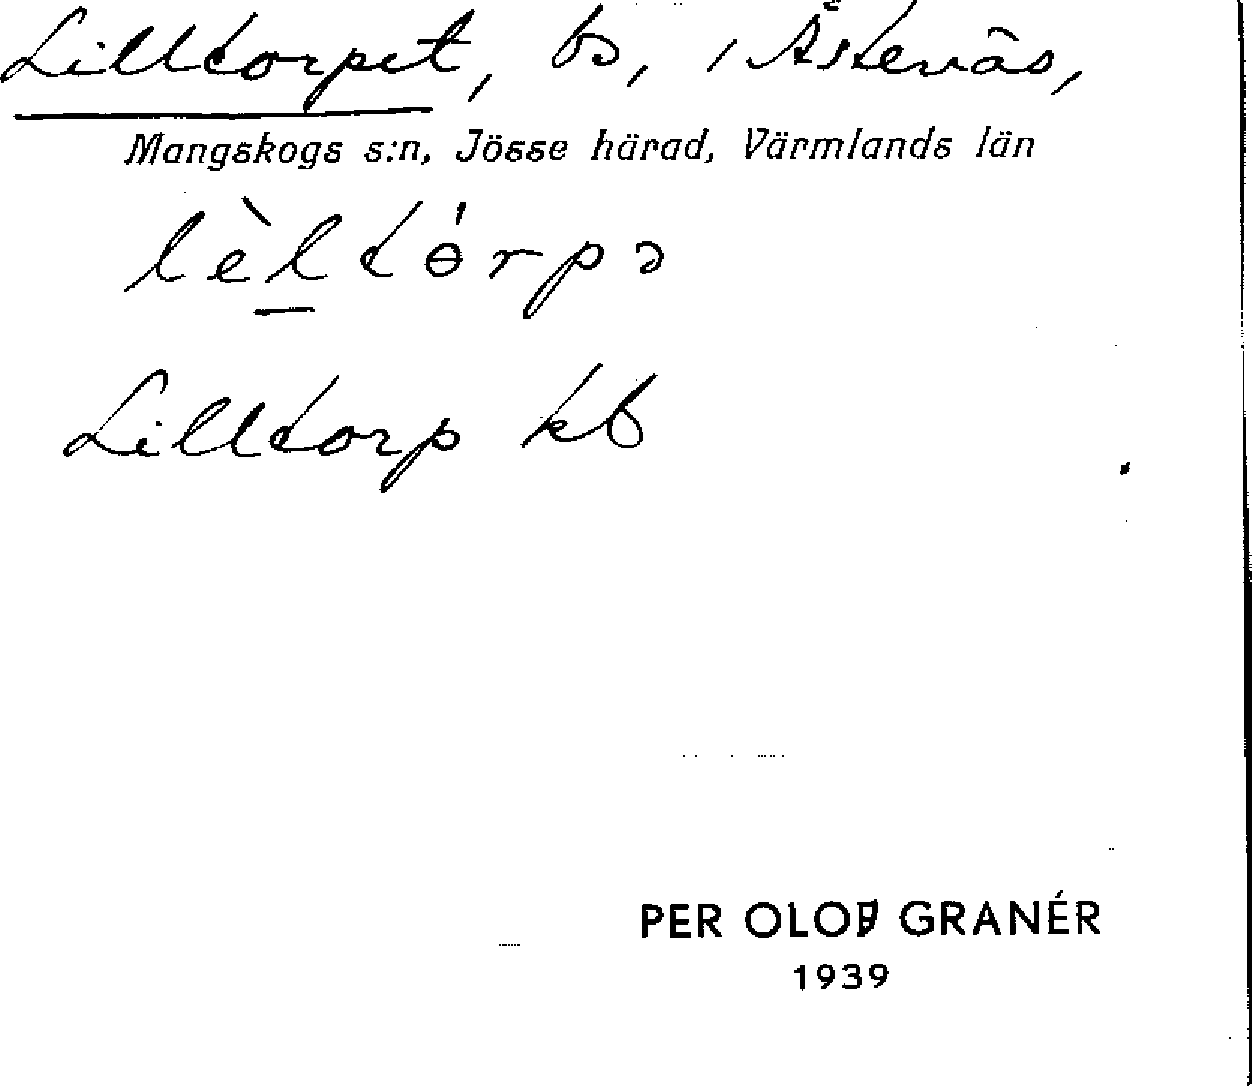 Lilltorpet, bs, i Åstenäs,
Mangskogs s:n, Jösse härad, Värmlands län
lèltórpə
Lilltorp kb
PER OLOF GRANÉR
1939